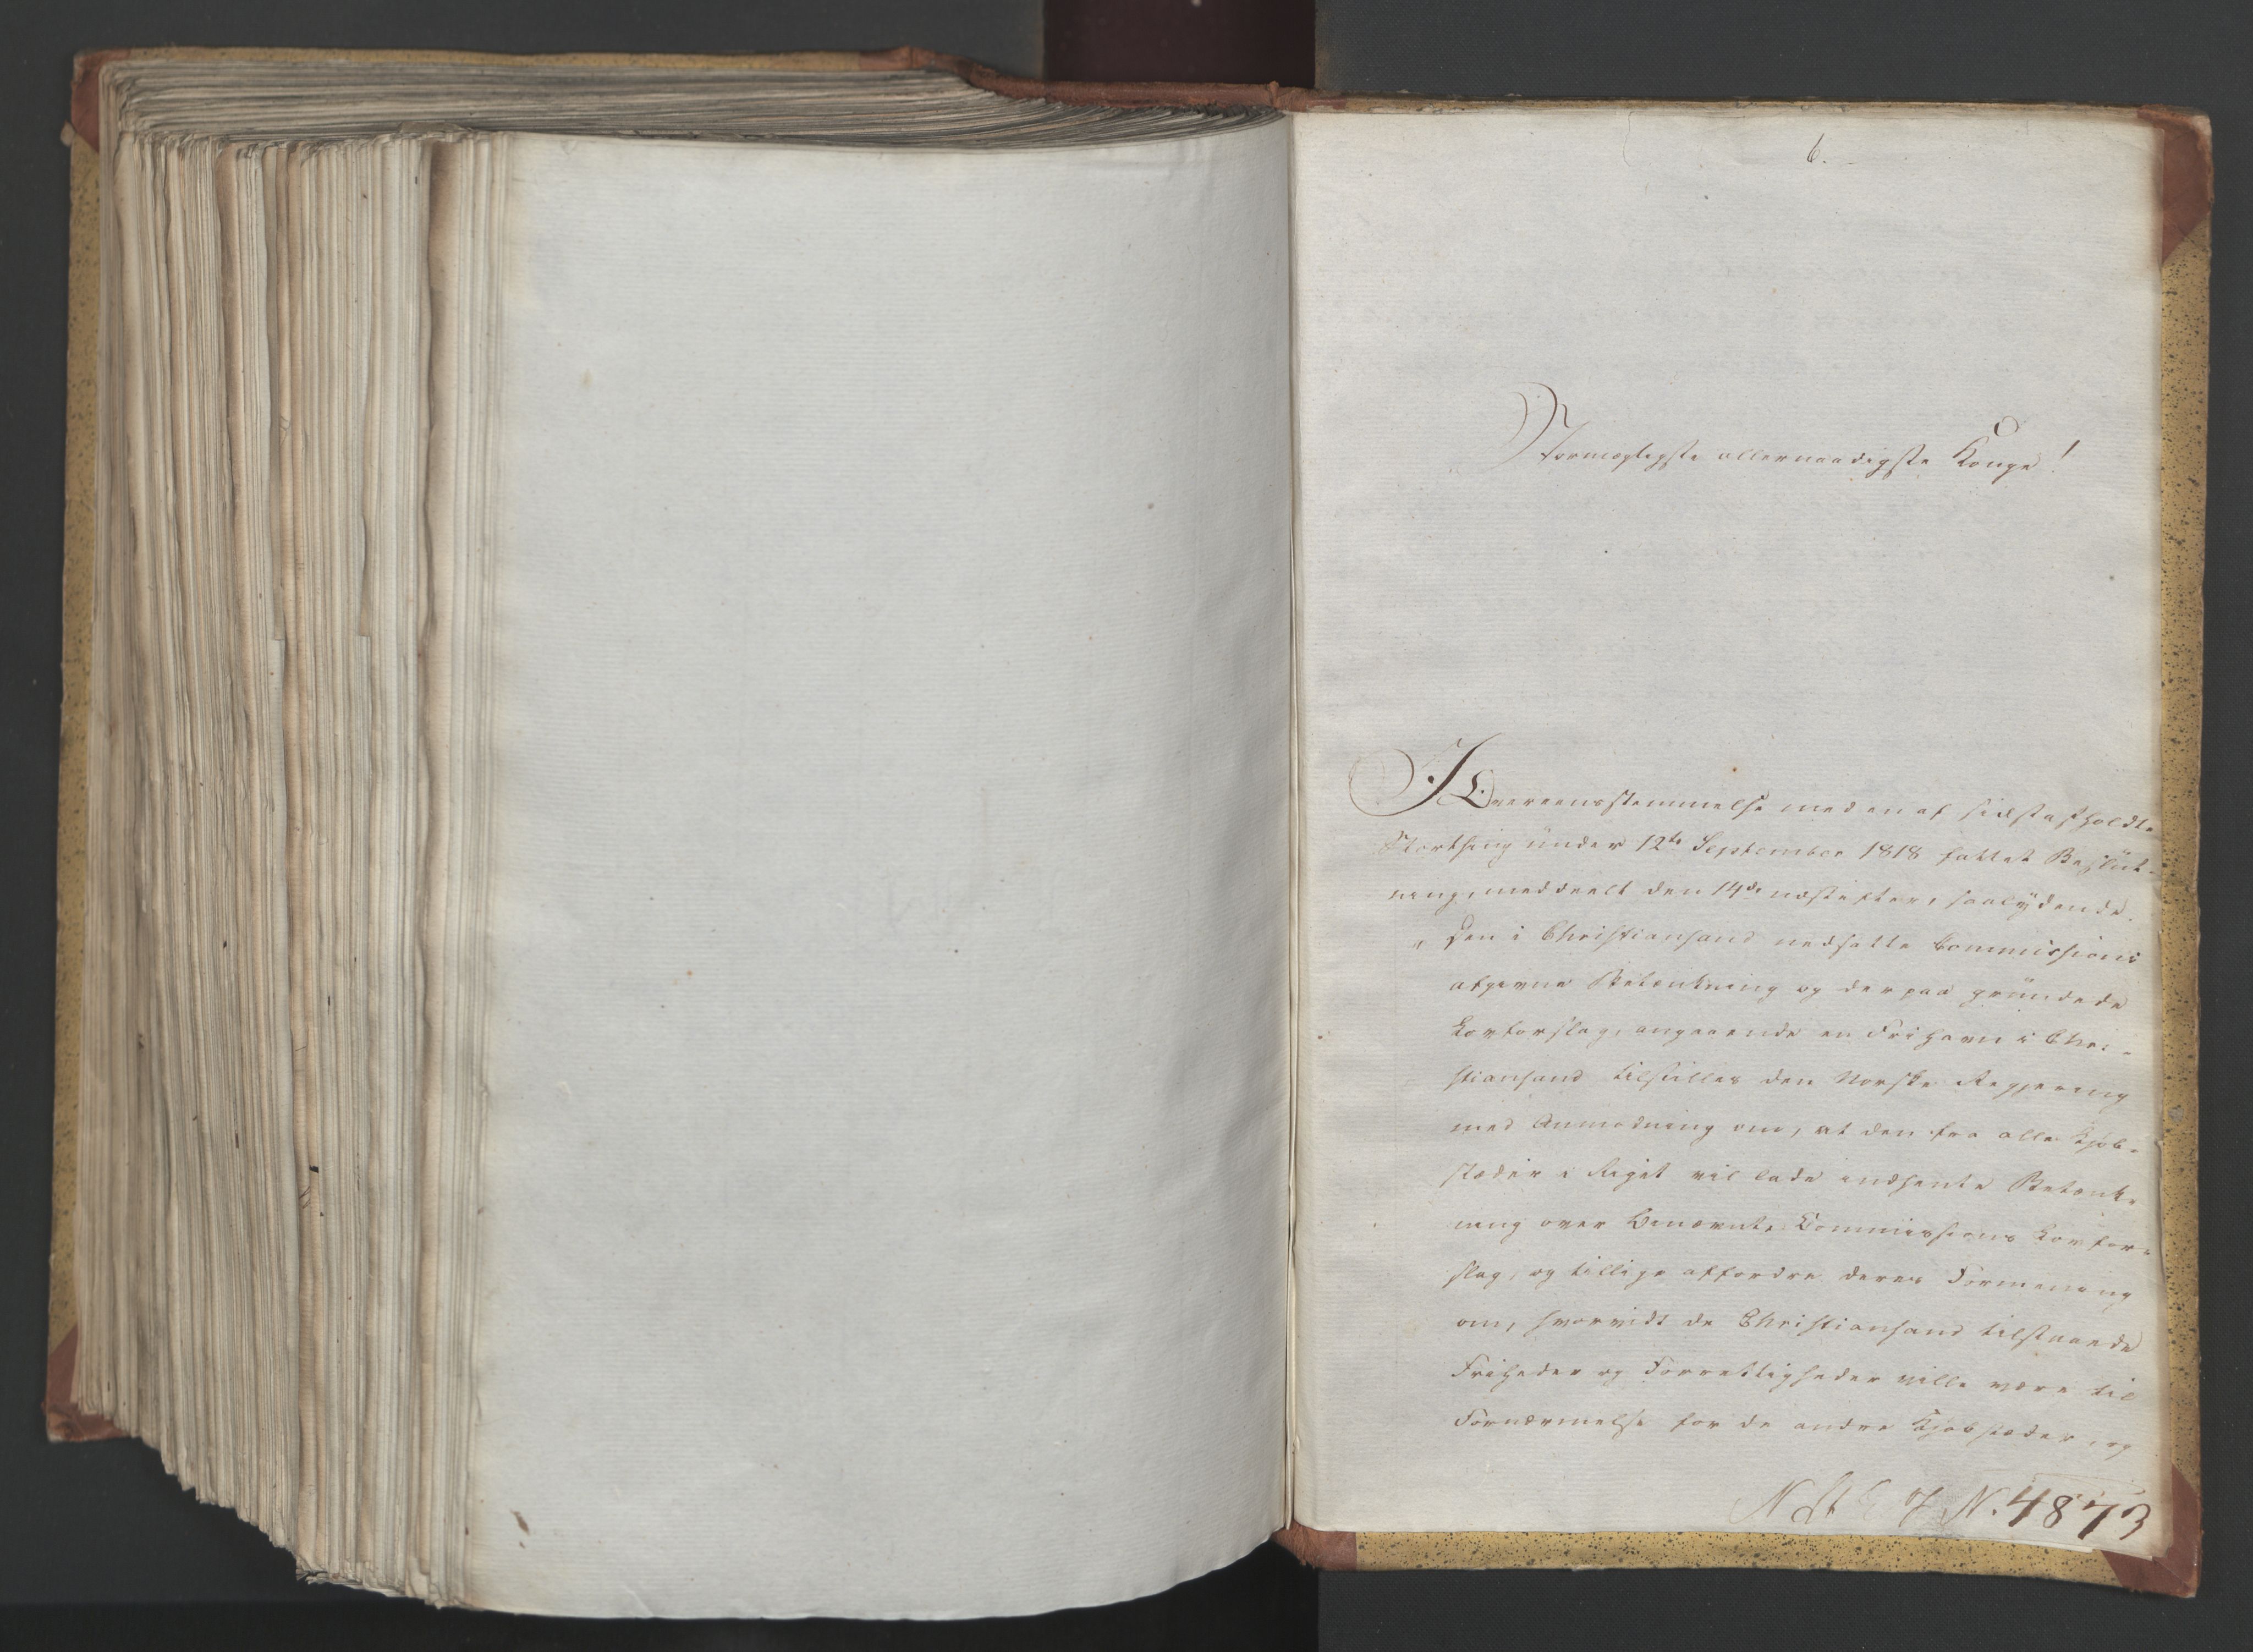 6.
Stormægtigste allernaadigste Konge!
I Overeensstemmelse med en af sidstafholdte
Storthing under 12te September 1818 fattet Beslut-
ning, meddeelt den 14de næstefter, saalydende.
"Den i Christiansand nedsatte Commissions
afgivne Betænkning og derpaa grundede
Lovforslag, angaaende en Frihavn i Chri-
stiansand tilstilles den Norske Regjering
med Anmodning om, at den fra alle Kjøb-
stæder i Riget vil lade indhente Betænk-
ning over benævnte Commissions Lovfor-
slag, og tillige affordre deres Formening
om, hvorvidt de Christiansand tilstaaede
Friheder og Forrettigheder ville være til
Fornærmelse for de andre Kjøbstæder, og
N St E J N. 4873